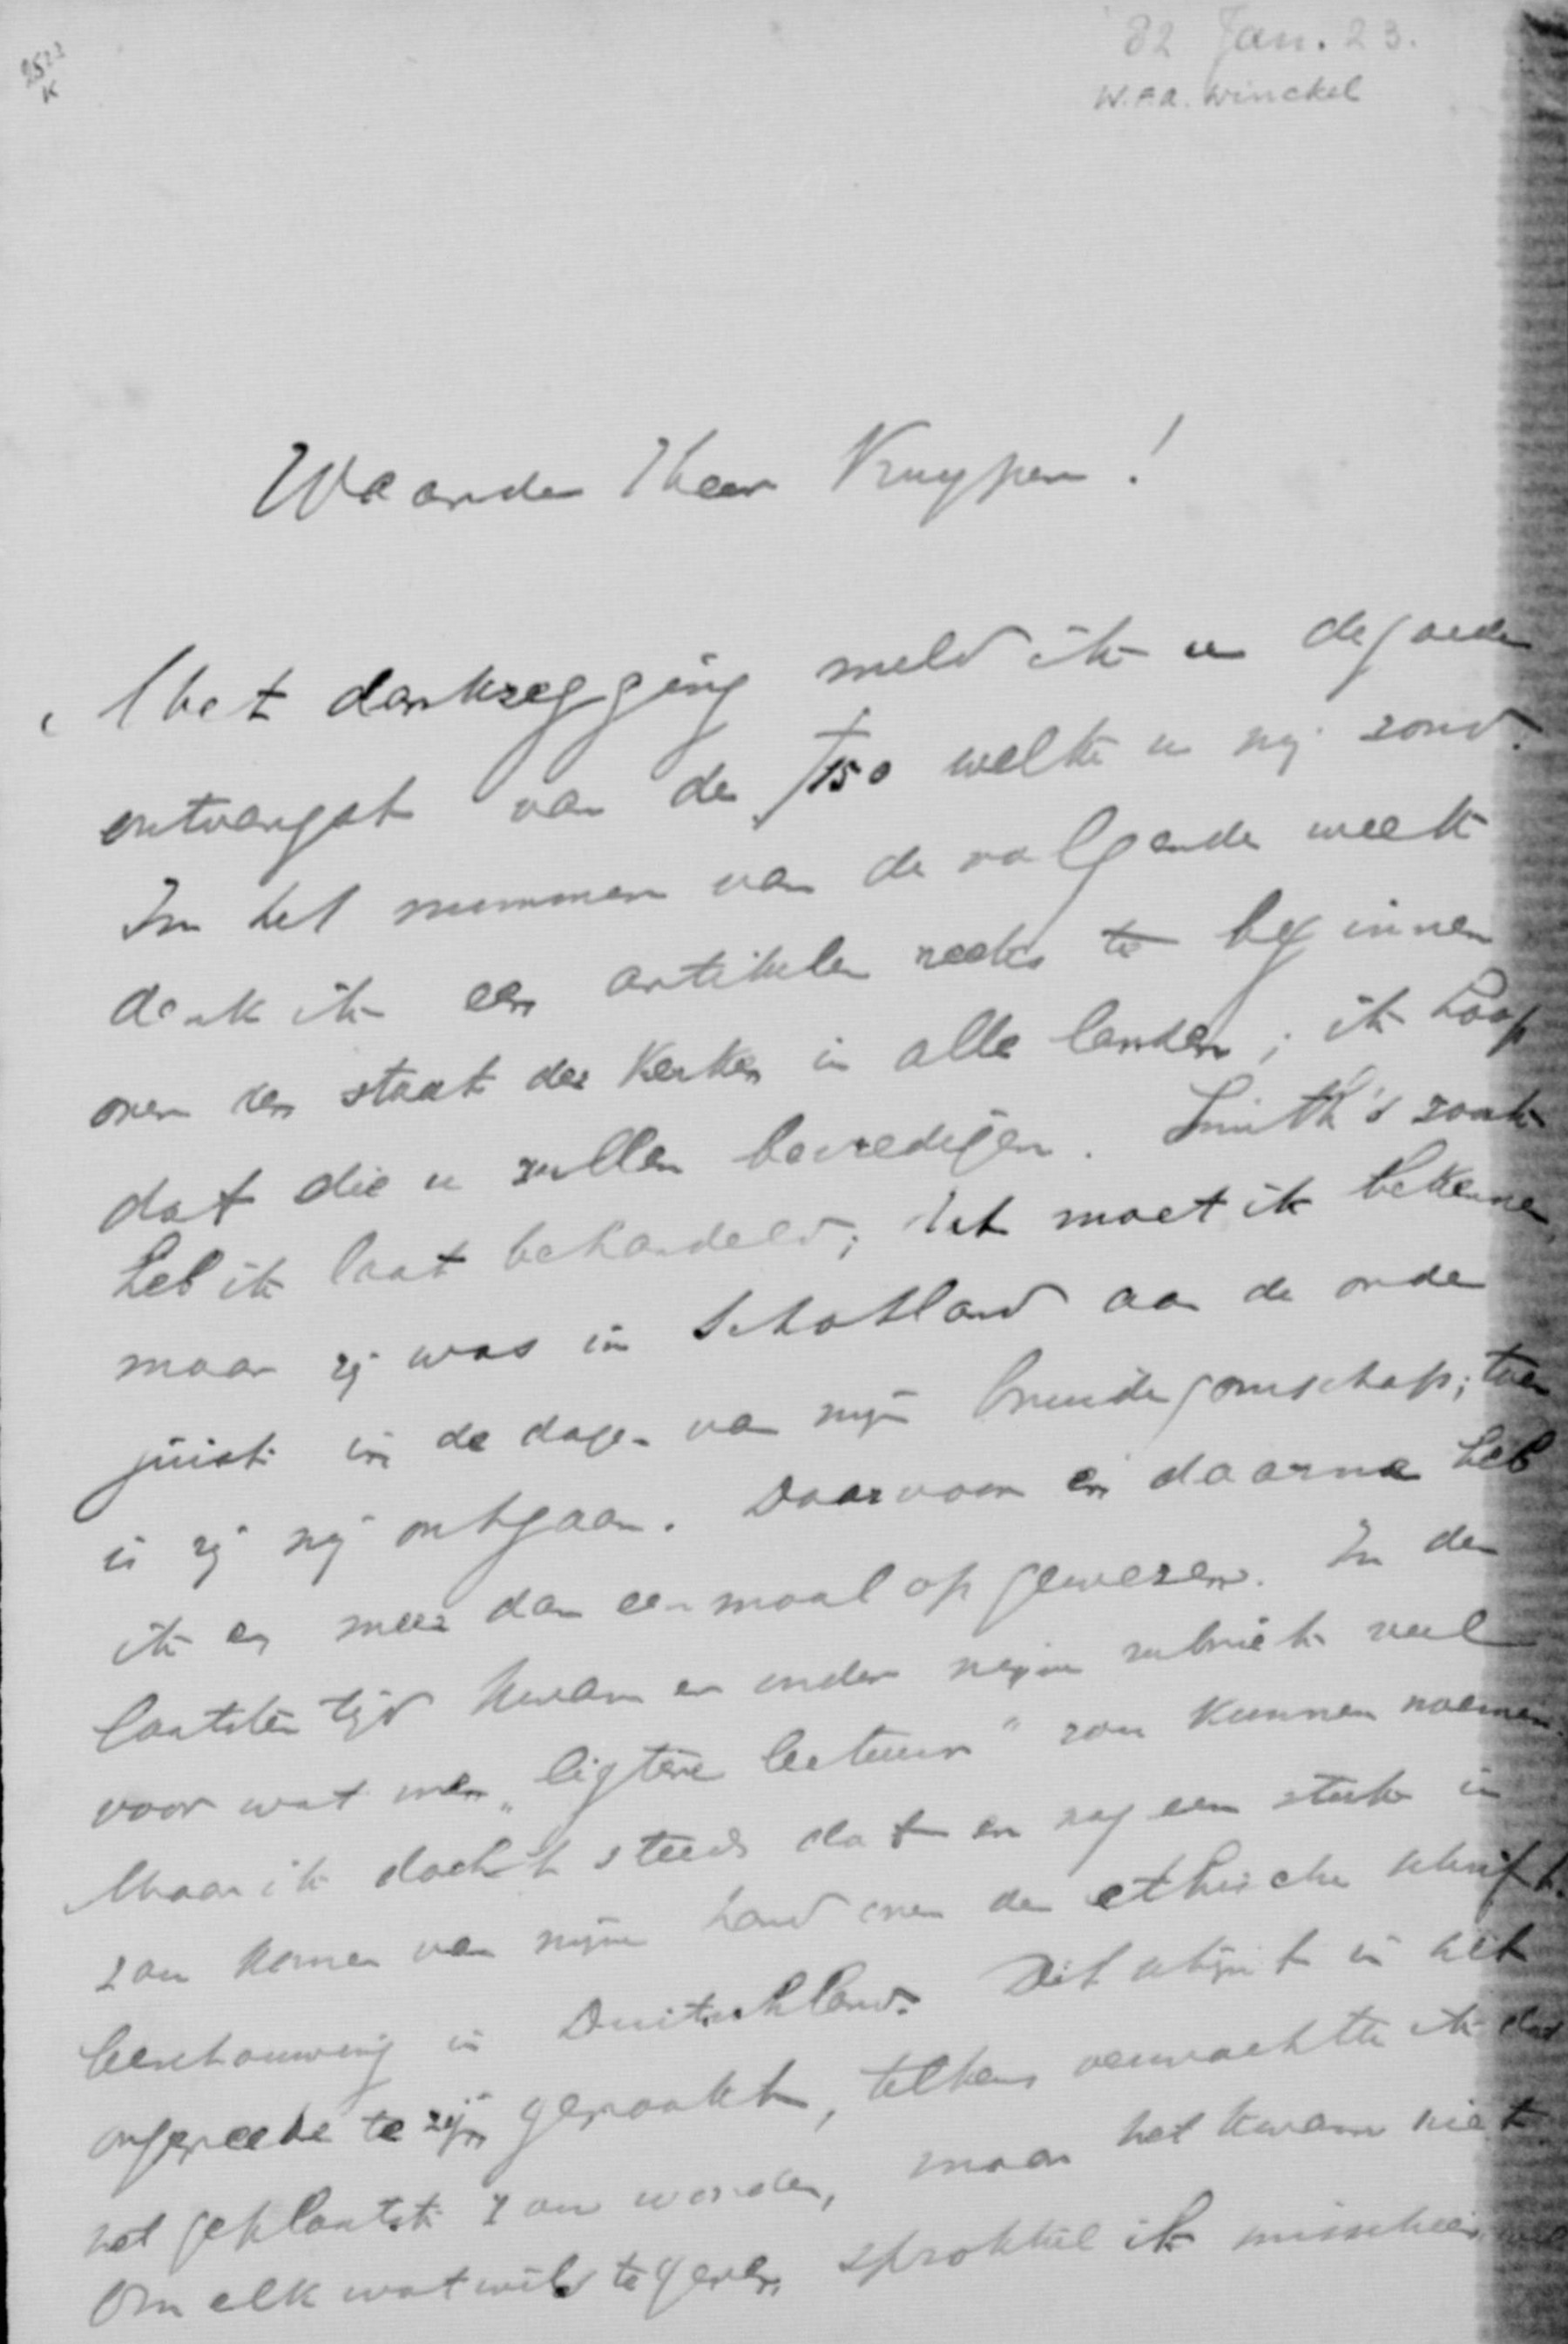 2522
K
82 Jan. 23.
W.F.A. Winckel
Waarde Heer Kuyper!
Met dankzegging meld ik u de goede
ontvangst van de ƒ150 welke u mij zond.
In het nummer van de volgende week
denk ik een artikelen reeks te beginnen
over den staat der Kerken in alle landen; ik hoop
dat die u zullen bevredigen. Smith's zaak
heb ik laat behandeld; dit moet ik bekennen
maar zij was in Schotland aan de orde
juist in de dagen van mijn bruidegomschap; toen
is zij mij ontgaan. Daarvoor en daarna heb
ik er meer dan eenmaal op gewezen. In den
laatsten tijd kwam er onder mijn rubriek veel
voor wat men „ligtere lectuur" zou kunnen noemen
Maar ik dacht steeds dat er nog een stuk in
zou komen van mijn hand over de ethische schrift
beschouwing in Duitschland. Dit schijnt in het
ongereede te zijn geraakt, telkens verwachtte ik dat
het geplaatst zou worden, maar het kwam niet.
Om elk wat wils te geven, sprokkel ik misschien wel